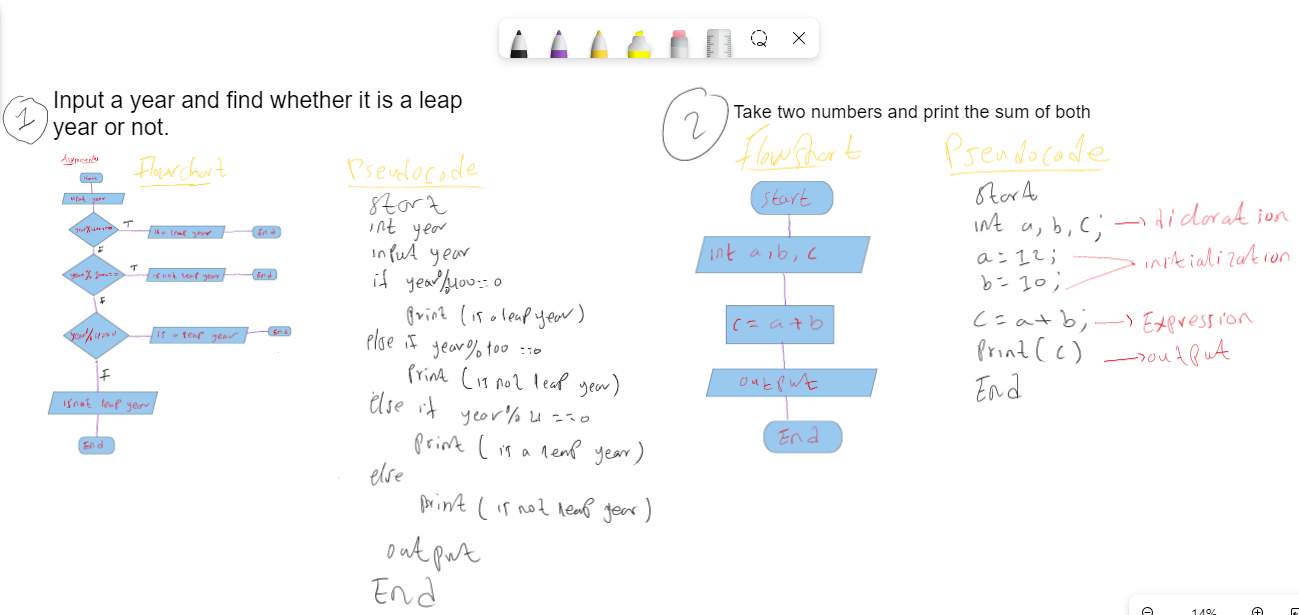 1
Input a year and find whether it is a leap
year or not.
Flowchart
Start
input year
T
is a leap year
End
F
year%100==0
T
is not leap year
End
F
year%4==0
is a leap year
End
F
is not leap year
End
Pseudocode
start
int year
input year
if year%400==0
print (is a leap year)
else if year%100 ==0
print (is not leap year)
else if year%4 ==0
print (is a leap year)
else
print (is not leap year)
output
End
2
Take two numbers and print the sum of both
Flowchart
start
int a, b, c
c = a + b
output
End
Pseudocode
start
int a, b, c; → diclaration
a = 12;
initialization
b = 10;
c = a + b; → Expression
print(c) → output
End
14%